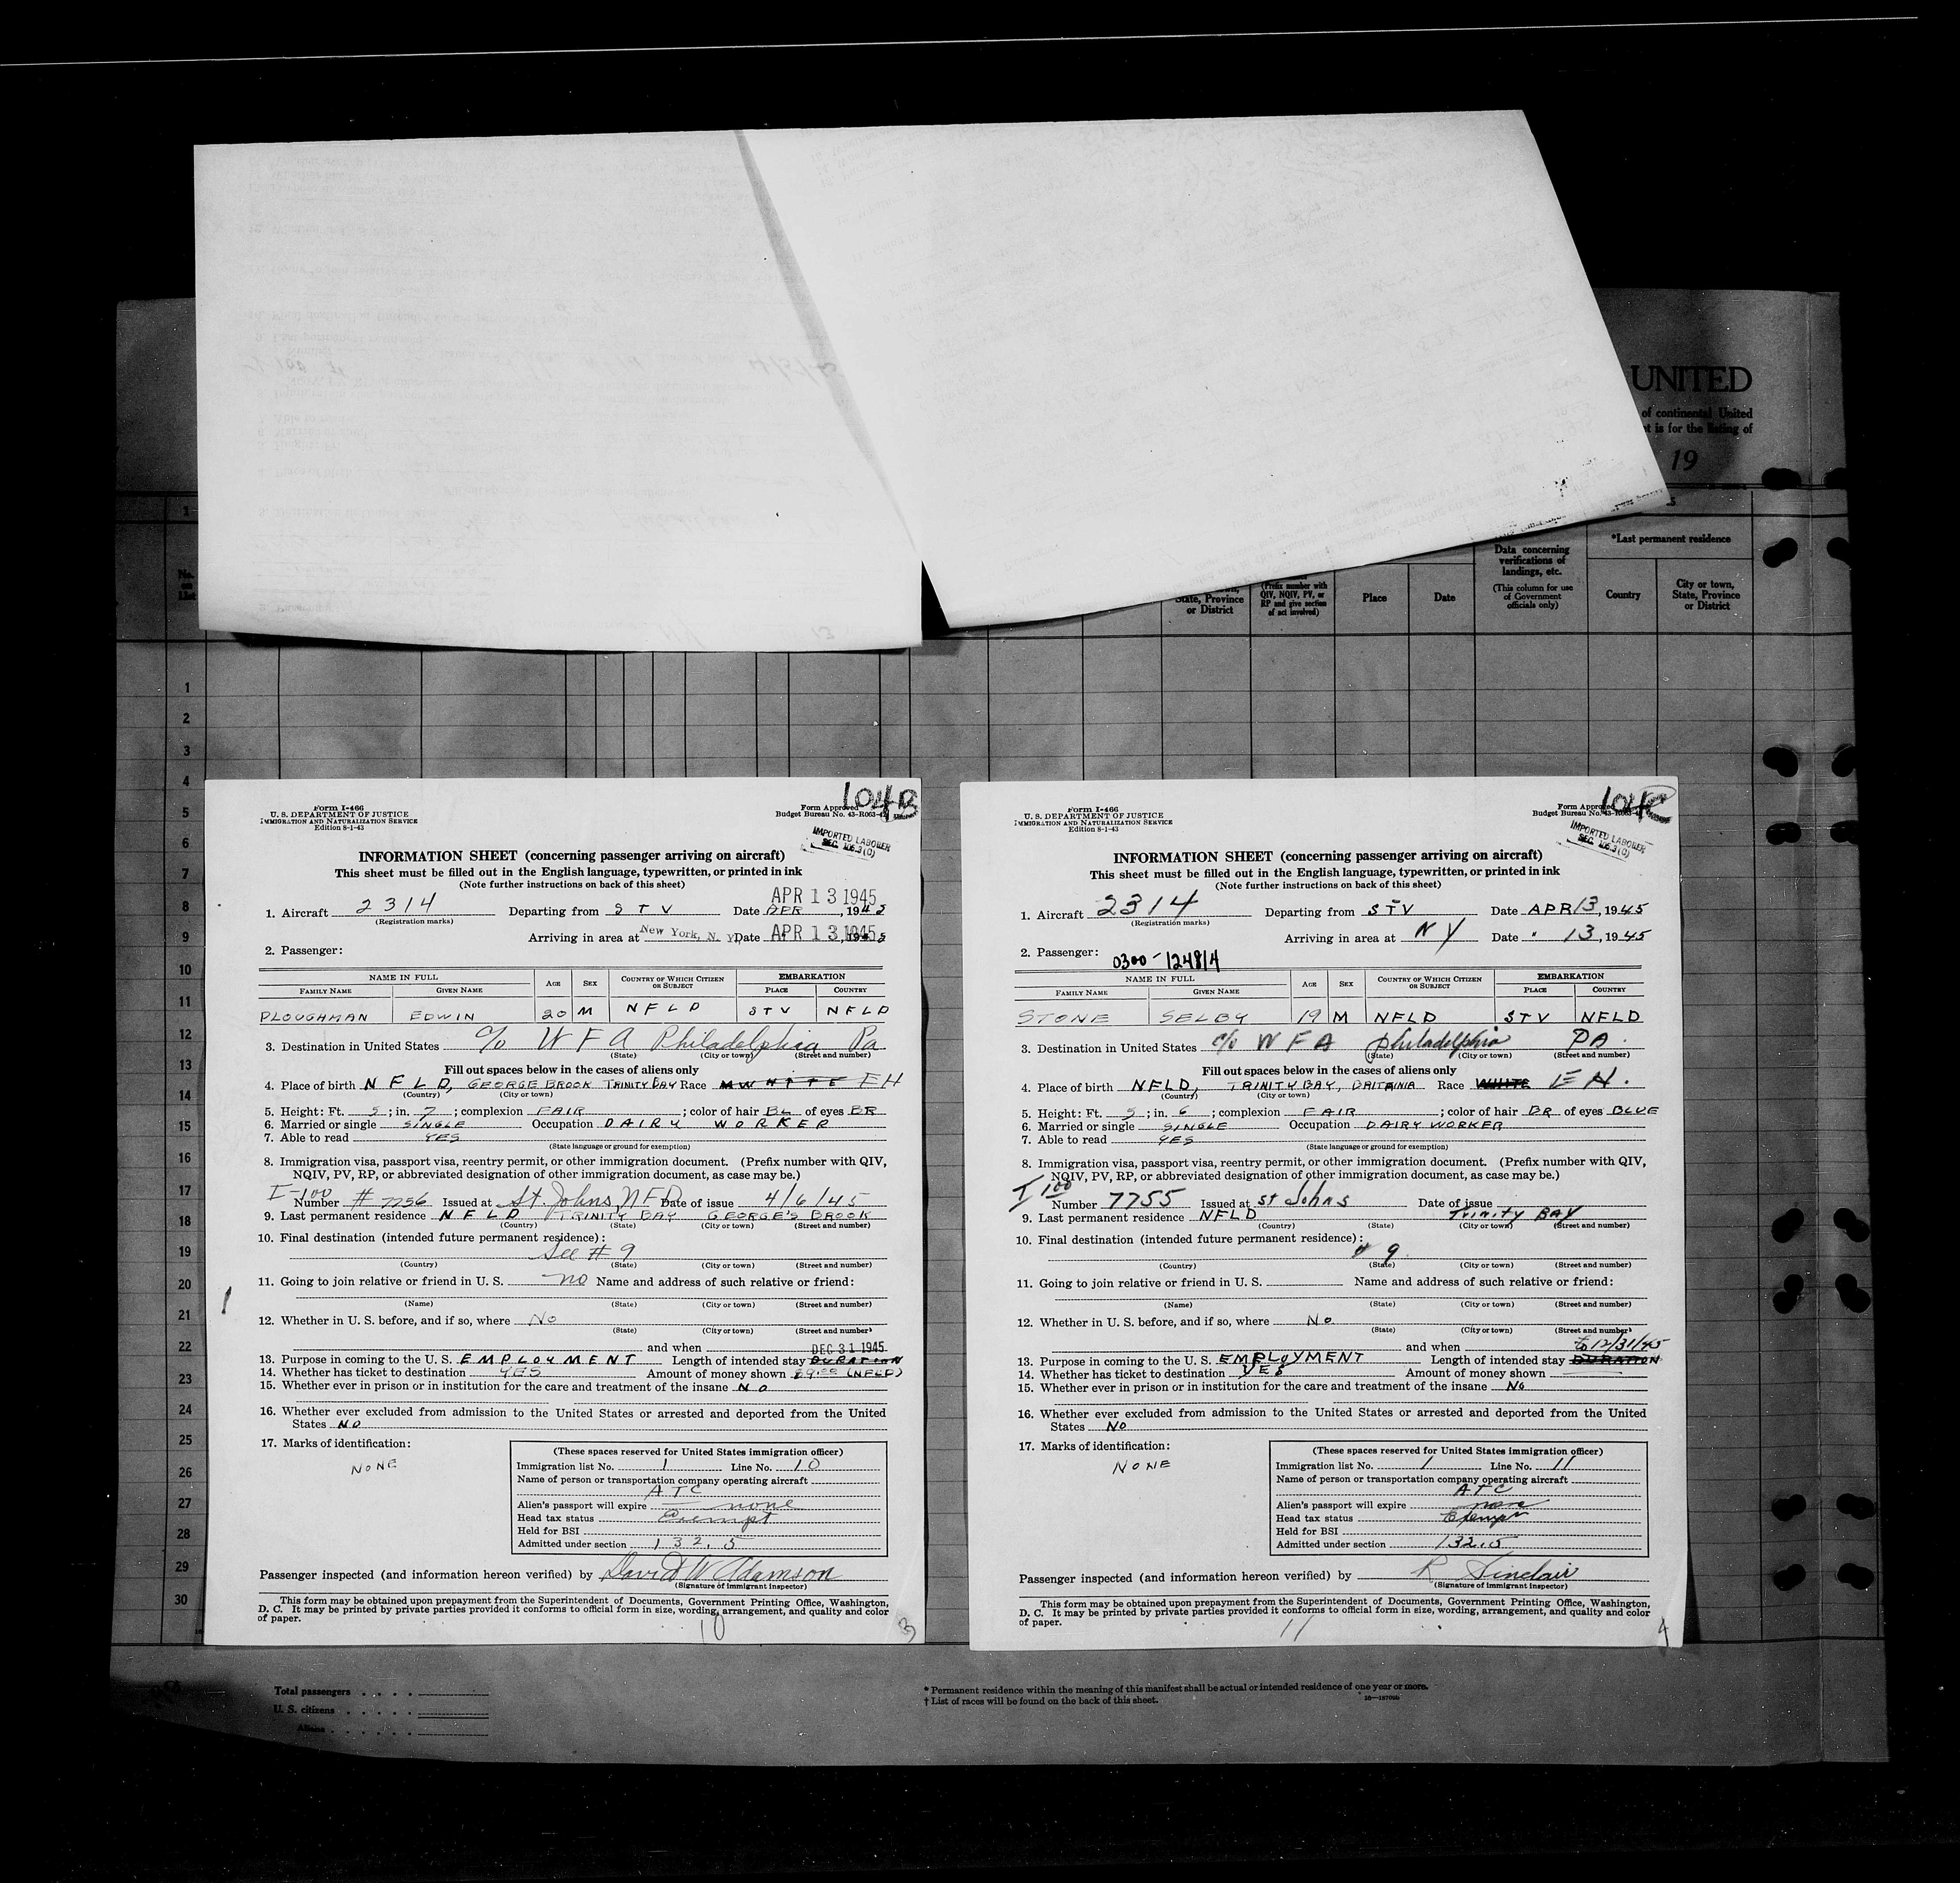 UNITED
of continental United
is for the listing of
19
1
No.
on
List
State, Province
or District
(Prefix number with
QIV, NQIV, PV, or
RP and give section
of act involved)
Place
Date
Data concerning
verifications of
landings, etc.
(This column for use
of Government
officials only)
*Last permanent residence
Country
City or town,
State, Province
or District
1
2
3
4
5
6
7
8
9
10
11
12
13
14
15
16
17
18
19
20
21
22
23
24
25
26
27
28
29
30
104B
Form I-466
U. S. DEPARTMENT OF JUSTICE
IMMIGRATION AND NATURALIZATION SERVICE
Edition 8-1-43
Form Approved
Budget Bureau No. 43-R063-42
IMPORTED LABORER
SEC. 106.3(O)
INFORMATION SHEET (concerning passenger arriving on aircraft)
This sheet must be filled out in the English language, typewritten, or printed in ink
(Note further instructions on back of this sheet)
APR 13 1945
1. Aircraft 2314 Departing from STV Date APR , 1945
(Registration marks)
Arriving in area at New York, N. Y. Date APR 13 1945
2. Passenger:
NAME IN FULL AGE SEX COUNTRY OF WHICH CITIZEN OR SUBJECT EMBARKATION
FAMILY NAME GIVEN NAME PLACE COUNTRY
PLOUGHMAN EDWIN 20 M NFLD STV NFLD
3. Destination in United States c/o W F A Philadelphia Pa
(State) (City or town) (Street and number)
Fill out spaces below in the cases of aliens only
4. Place of birth NFLD, GEORGE BROOK TRINITY BAY Race WHITE EH
(Country) (City or town)
5. Height: Ft. 5 ; in. 7 ; complexion FAIR ; color of hair BL of eyes BR
6. Married or single SINGLE Occupation DAIRY WORKER
7. Able to read YES
(State language or ground for exemption)
8. Immigration visa, passport visa, reentry permit, or other immigration document. (Prefix number with QIV,
NQIV, PV, RP, or abbreviated designation of other immigration document, as case may be.)
I-100
Number # 7756 Issued at St. Johns, NFD Date of issue 4/6/45
9. Last permanent residence NFLD TRINITY BAY GEORGE'S BROOK
(Country) (State) (City or town) (Street and number)
10. Final destination (intended future permanent residence):
See # 9
(Country) (State) (City or town) (Street and number)
11. Going to join relative or friend in U. S. no Name and address of such relative or friend:
(Name) (State) (City or town) (Street and number)
12. Whether in U. S. before, and if so, where No
(State) (City or town) (Street and number)
and when
DEC 31 1945
13. Purpose in coming to the U. S. EMPLOYMENT Length of intended stay DURATION
14. Whether has ticket to destination YES Amount of money shown (NFLD)
15. Whether ever in prison or in institution for the care and treatment of the insane NO
16. Whether ever excluded from admission to the United States or arrested and deported from the United
States NO
17. Marks of identification:
NONE
(These spaces reserved for United States immigration officer)
Immigration list No. 1 Line No. 10
Name of person or transportation company operating aircraft
ATC
Alien's passport will expire none
Head tax status Exempt
Held for BSI
Admitted under section 132.5
Passenger inspected (and information hereon verified) by David W Adamson
(Signature of immigrant inspector)
This form may be obtained upon prepayment from the Superintendent of Documents, Government Printing Office, Washington,
D. C. It may be printed by private parties provided it conforms to official form in size, wording, arrangement, and quality and color
of paper.
10
3
104C
Form I-466
U. S. DEPARTMENT OF JUSTICE
IMMIGRATION AND NATURALIZATION SERVICE
Edition 8-1-43
Form Approved
Budget Bureau No. 43-R063-4
IMPORTED LABORER
SEC. 106.3(O)
INFORMATION SHEET (concerning passenger arriving on aircraft)
This sheet must be filled out in the English language, typewritten, or printed in ink
(Note further instructions on back of this sheet)
1. Aircraft 2314 Departing from STV Date APR 13, 1945
(Registration marks)
Arriving in area at NY Date " 13, 1945
2. Passenger: 0300-124814
NAME IN FULL AGE SEX COUNTRY OF WHICH CITIZEN OR SUBJECT EMBARKATION
FAMILY NAME GIVEN NAME PLACE COUNTRY
STONE SELBY 19 M NFLD STV NFLD
3. Destination in United States c/o W F A Philadelphia PA.
(State) (City or town) (Street and number)
Fill out spaces below in the cases of aliens only
4. Place of birth NFLD, TRINITY BAY, BRITANIA Race WHITE EH.
(Country) (City or town)
5. Height: Ft. 5 ; in. 6 ; complexion FAIR ; color of hair BR of eyes BLUE
6. Married or single SINGLE Occupation DAIRY WORKER
7. Able to read YES
(State language or ground for exemption)
8. Immigration visa, passport visa, reentry permit, or other immigration document. (Prefix number with QIV,
NQIV, PV, RP, or abbreviated designation of other immigration document, as case may be.)
I 100
Number 7755 Issued at St Johns Date of issue
9. Last permanent residence NFLD Trinity BAY
(Country) (State) (City or town) (Street and number)
10. Final destination (intended future permanent residence):
# 9
(Country) (State) (City or town) (Street and number)
11. Going to join relative or friend in U. S. Name and address of such relative or friend:
(Name) (State) (City or town) (Street and number)
12. Whether in U. S. before, and if so, where No
(State) (City or town) (Street and number)
and when to 12/31/45
13. Purpose in coming to the U. S. EMPLOYMENT Length of intended stay DURATION
14. Whether has ticket to destination YES Amount of money shown
15. Whether ever in prison or in institution for the care and treatment of the insane No
16. Whether ever excluded from admission to the United States or arrested and deported from the United
States NO
17. Marks of identification:
NONE
(These spaces reserved for United States immigration officer)
Immigration list No. 1 Line No. 11
Name of person or transportation company operating aircraft
ATC
Alien's passport will expire none
Head tax status Exempt
Held for BSI
Admitted under section 132.5
Passenger inspected (and information hereon verified) by R Sinclair
(Signature of immigrant inspector)
This form may be obtained upon prepayment from the Superintendent of Documents, Government Printing Office, Washington,
D. C. It may be printed by private parties provided it conforms to official form in size, wording, arrangement, and quality and color
of paper.
11
4
Total passengers
U. S. citizens
Aliens
* Permanent residence within the meaning of this manifest shall be actual or intended residence of one year or more.
† List of races will be found on the back of this sheet.